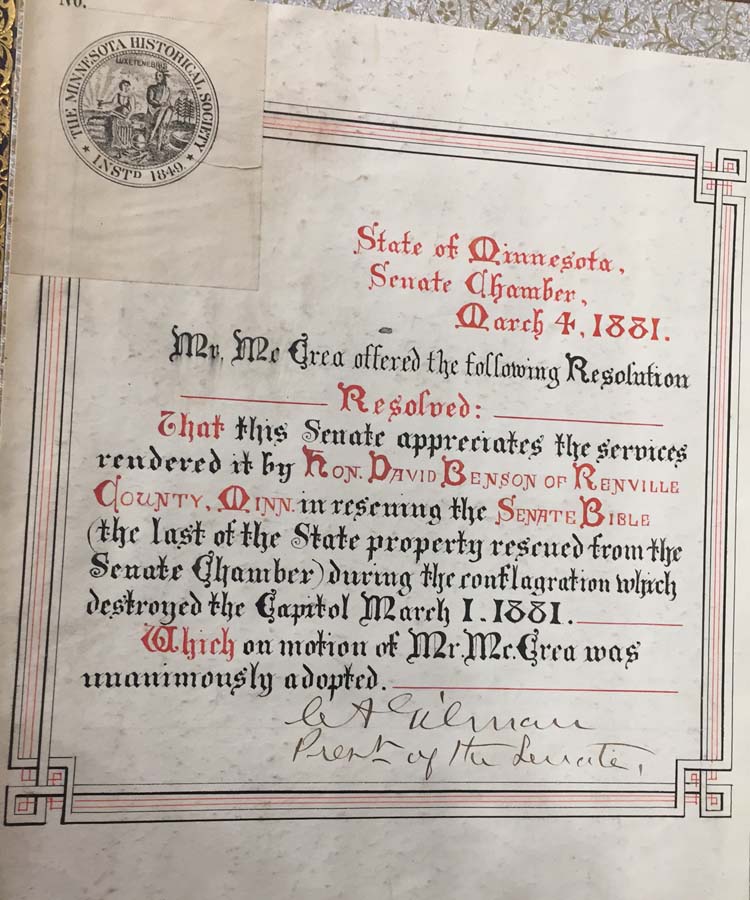 No.
THE MINNESOTA HISTORICAL SOCIETY
LUX E TENEBRIS
INSTD 1849.
State of Minnesota,
Senate Chamber,
March 4, 1881.
Mr. Mc Crea offered the following Resolution
Resolved:
That this Senate appreciates the services
rendered it by Hon. David Benson of Renville
County, Minn. in rescuing the Senate Bible
(the last of the State property rescued from the
Senate Chamber) during the conflagration which
destroyed the Capitol March 1. 1881.
Which on motion of Mr. Mc. Crea was
unanimously adopted.
C A Gilman
Prest of the Senate,